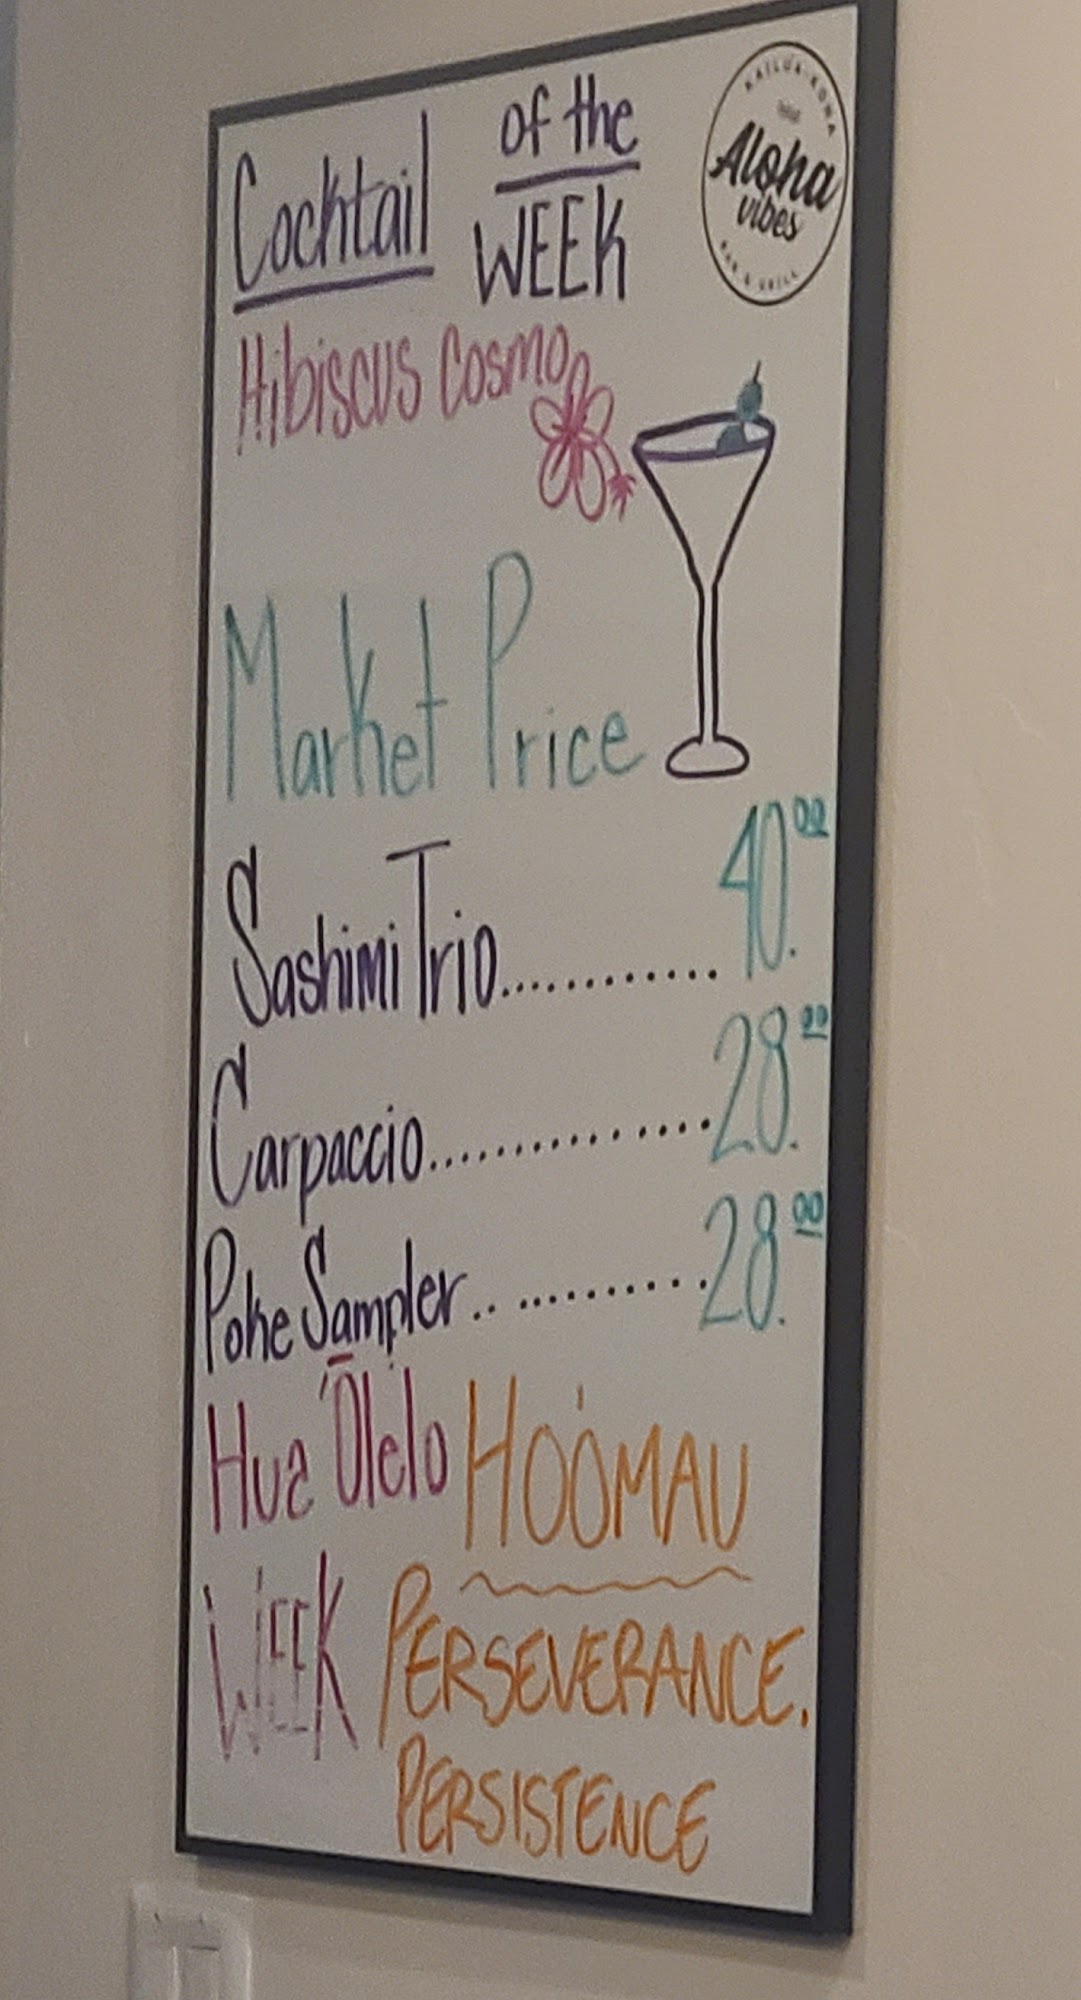 Cocktail of the WEEK
KAILUA-KONA
Aloha
vibes
BAR & GRILL
Hibiscus Cosmo
Market Price
Sashimi Trio............ 40.00
Carpaccio............... 28.00
Poke Sampler............ 28.00
Hua ʻŌlelo HOʻOMAU
WEEK PERSEVERANCE.
PERSISTENCE